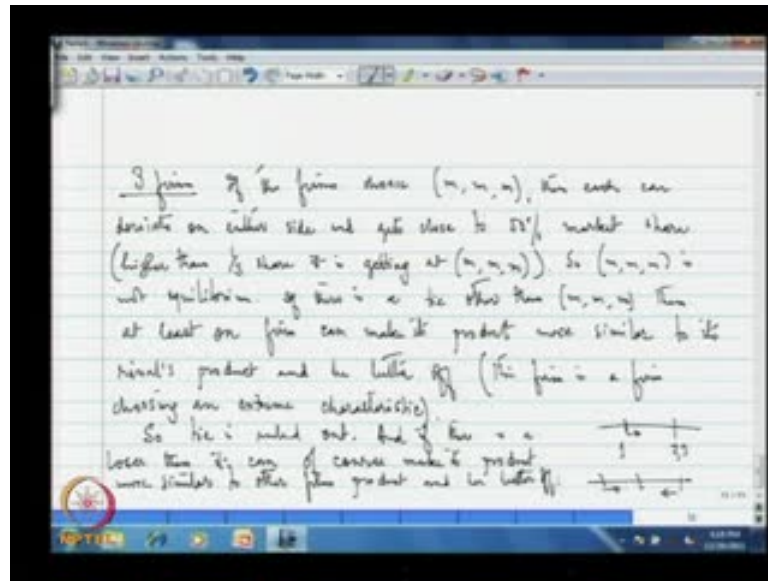 3 firms If the firms choose (m, m, m), then each can
deviate on either side and gets close to 50% market share
(higher than 1/3 share it is getting at (m, m, m)). So (m, m, m) is
not equilibrium. If there is a tie other than (m, m, m) then
at least on firm can make its product more similar to its
rival's product and be better off (This firm is a firm
choosing an extreme characteristic)
So tie is ruled out. And if there is a
loser then it can of course make its product
more similar to other firms product and be better off.
1 2,3
NPTEL